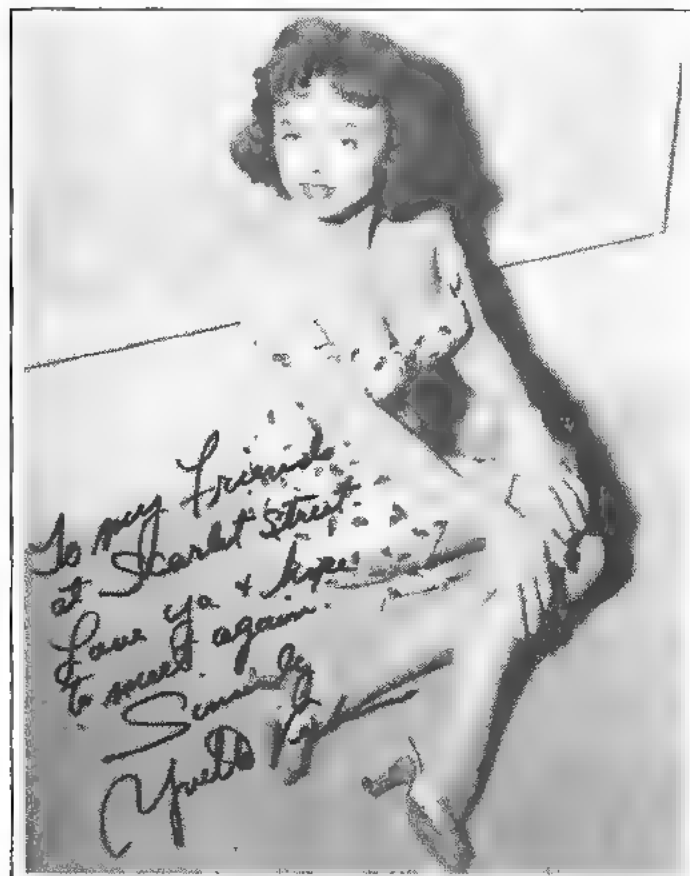 To my Friends
at Scarlet Street
Love ya & hope
to meet again.
Sincerely
Yvette